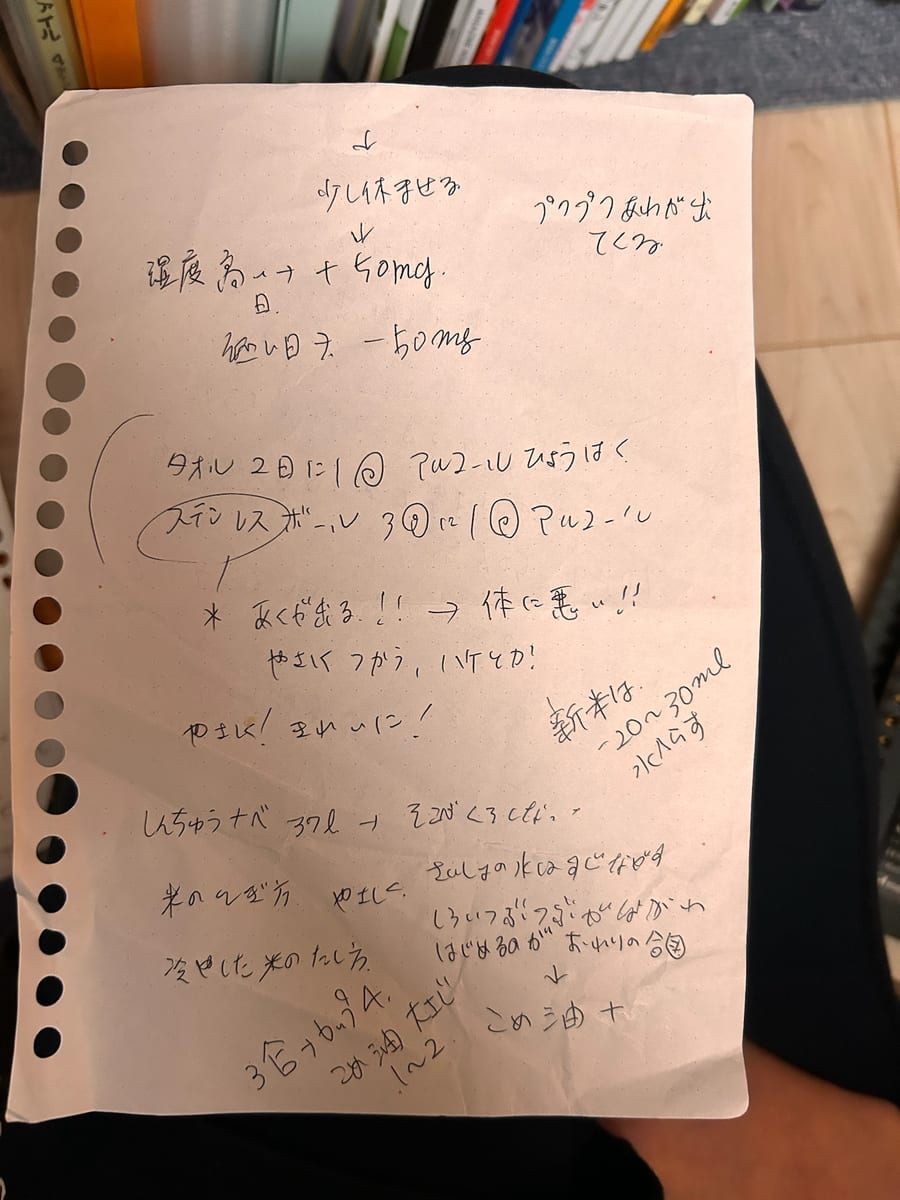 アイル 4
↓
少し休ませる
プクプクあわが出
てくる
↓
湿度高い→ + 50mg.
日
日 → -50mg
タオル 2日に1回 アルコールひょうはく
ステンレスボール 3回に1回アルコール
* あくが出る!! → 体に悪い!!
やさしくつかう, ハケとか!
新米は
-20~30ml
水へらす
やさしく! きれいに!
しんちゅうナベ →
米のとぎ方 やさしく
さいしょの水はすぐながす
しろいつぶつぶが
はじめるのがおわりの合図
↓
冷やした米のたし方
こめ油 +
3合→
こめ油 大さじ
1~2